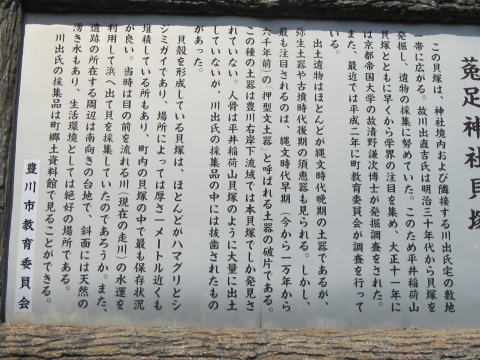 菟足神社貝塚
この貝塚は、神社境内および隣接する川出氏宅の敷地
一帯に広がる。故川出直吉氏は明治三十年代から貝塚を
発掘し、遺物の採集に努めていた。このため平井稲荷山
貝塚とともに早くから学界の注目を集め、大正十一年に
は京都帝国大学の故清野謙次博士が発掘調査をされた。
また、最近では平成二年に町教育委員会が調査を行って
いる。
出土遺物はほとんどが縄文時代晩期の土器であるが、
弥生土器や古墳時代後期の須恵器も見られる。しかし、
最も注目されるのは、縄文時代早期(今から一万年から
六千年前)の「押型文土器」と呼ばれる土器の破片である。
この種の土器は豊川右岸下流域では本貝塚でしか発見さ
れていない。人骨は平井稲荷山貝塚のように大量に出土
していないが、川出氏の採集品の中には抜歯されたもの
があった。
貝殻を形成している貝塚は、ほとんどがハマグリとシ
ジミガイであり、場所によっては厚さ一メートル近くも
堆積している所もあり、町内の貝塚の中で最も保存状況
が良い。当時は目の前を流れる川(現在の走川)の水運を
利用して浜へ出て貝を採集していたのであろうか。また、
遺跡の所在する周辺は南向きの台地で、斜面には天然の
湧き水もあり、生活環境としては絶好の場所である。
川出氏の採集品は町郷土資料館で見ることができる。
豊川市教育委員会